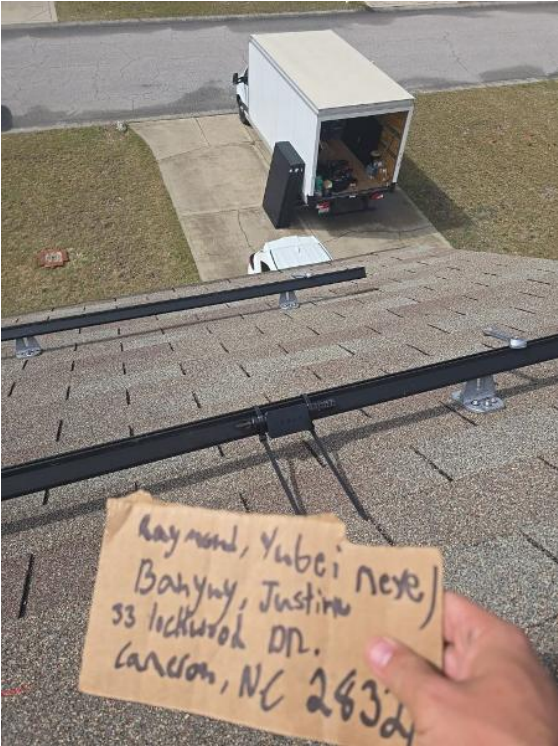 Raymond, Yubei neye)
Banyny, Justine
33 lockwood DR.
Cameron, NC 2832